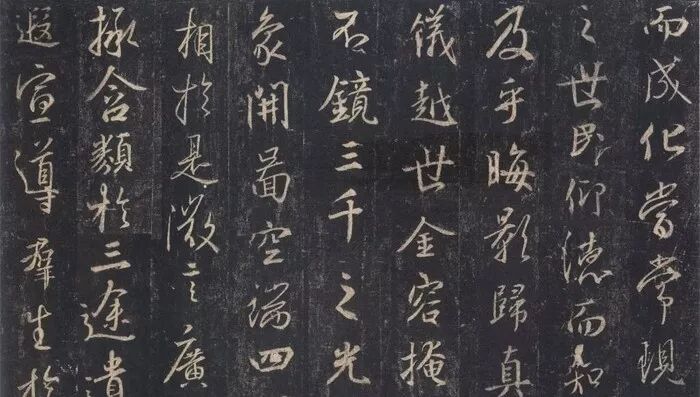 而成化當常現
之世民仰德而知
及乎晦影歸真
儀越世金容掩
不鏡三千之光
象開圖空端四
相於是微言廣
拯含類於三途遺
遐宣導羣生於